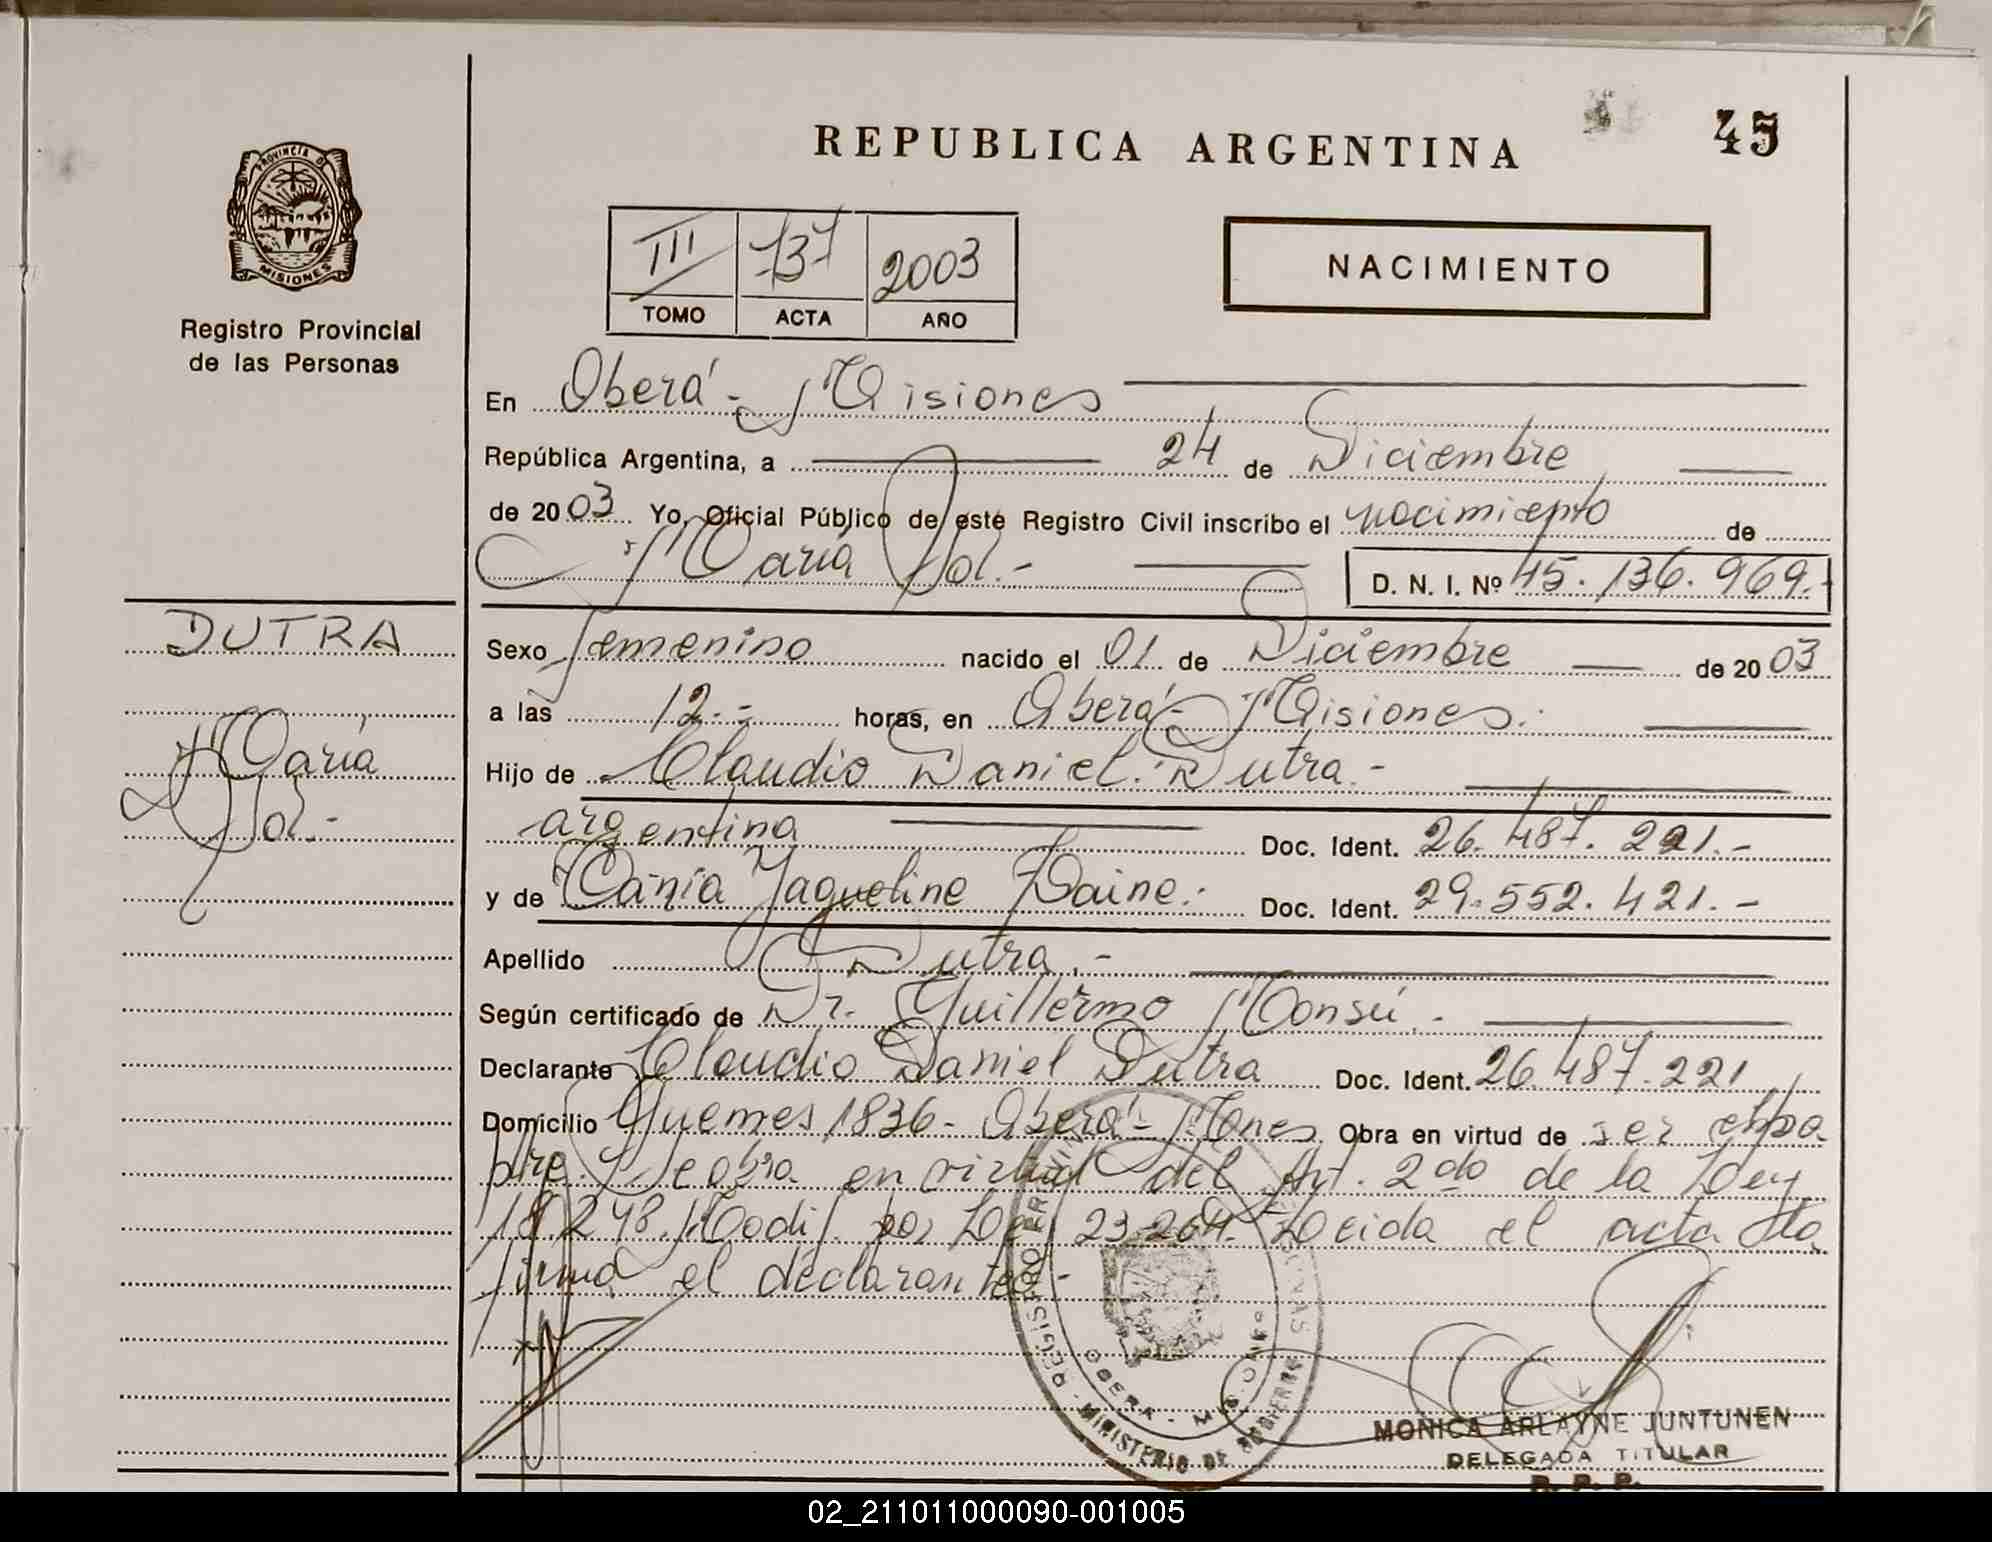 REPUBLICA ARGENTINA
45
PROVINCIA DE
MISIONES
Registro Provincial
de las Personas
III 737 2003
TOMO ACTA AÑO
NACIMIENTO
En Oberá - Misiones
República Argentina, a 24 de Diciembre
de 2003 Yo, Oficial Público de este Registro Civil inscribo el nacimiento de
María Sol.-
D. N. I. Nº 45.136.969.-
DUTRA
María
Sol.-
Sexo femenino nacido el 01 de Diciembre de 2003
a las 12.- horas, en Oberá - Misiones.
Hijo de Claudio Daniel Dutra.-
argentina Doc. Ident. 26.487.221.-
y de Tania Jaqueline Daine. Doc. Ident. 29.552.421.-
Apellido Dutra.-
Según certificado de Dr. Guillermo Monsú.-
Declarante Claudio Daniel Dutra Doc. Ident. 26.487.221
Domicilio Guemes 1836 - Oberá - Mones Obra en virtud de ser el pa
dre. Se obra en virtud del Art. 2do de la Ley
18.248. Modif. por Ley 23.264. Leida el acta la
firma el declarante.-
REGISTRO PROVINCIAL PERSONAS - MINISTERIO DE GOBIERNO
OBERA - MISIONES
MONICA ARLAYNE JUNTUNEN
DELEGADA TITULAR
R. P. P.
02_211011000090-001005